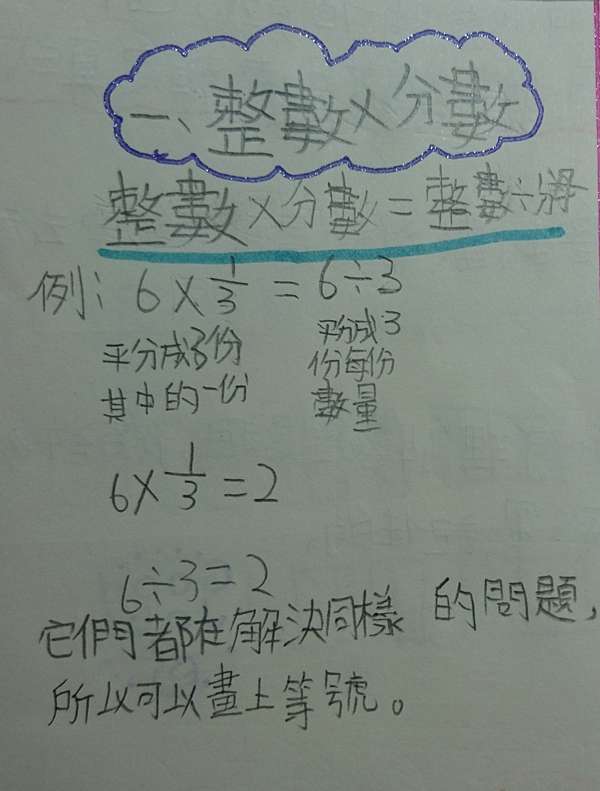 一、整數×分數
整數×分數=整數÷分母
例: 6 × 1/3 = 6÷3
平分成3份
其中的一份
平分成3
份每份
數量
6×1/3=2
6÷3=2
它們都在解決同樣 的問題,
所以可以畫上等號。